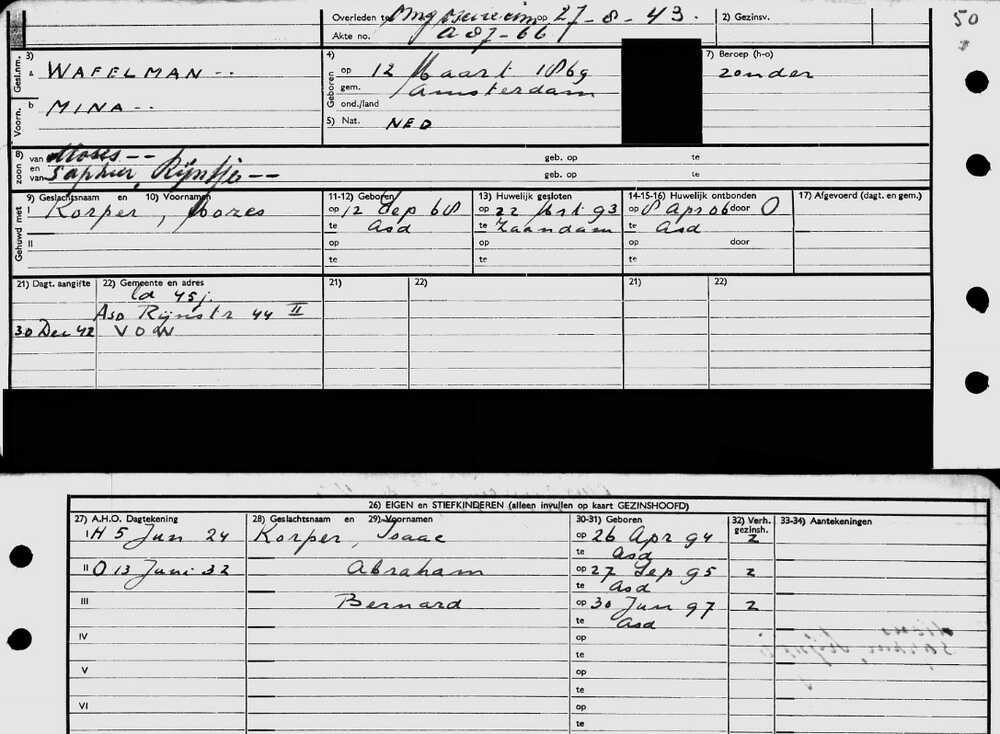 Overleden te op 27-8-43. 2) Gezinsv. 50
Akte no. A 87-66
Gesl.nm. 3) a WAFELMAN --
Voorn. b MINA --
4) Geboren op 12 Maart 1869
gem. Amsterdam
ond./land
5) Nat. NED
7) Beroep (h-o)
zonder
8) zoon van Moses -- geb. op te
en van Saphier, Rijntje -- geb. op te
Gehuwd met 9) Geslachtsnaam en 10) Voornamen 11-12) Geboren 13) Huwelijk gesloten 14-15-16) Huwelijk ontbonden 17) Afgevoerd (dagt. en gem.)
I Korper, Mozes op 12 Sep 68 op 22 Mrt 93 op 8 Apr 06 door O
te Asd te Zaandam te Asd
II op op op door
te te te
21) Dagt. aangifte 22) Gemeente en adres 21) 22) 21) 22)
45 j.
Asd Rijnstr 44 II
30 Dec 42 VOW
26) EIGEN en STIEFKINDEREN (alleen invullen op kaart GEZINSHOOFD)
27) A.H.O. Dagtekening 28) Geslachtsnaam en 29) Voornamen 30-31) Geboren 32) Verh. gezinsh. 33-34) Aantekeningen
I H 5 Jun 24 Korper, Isaac op 26 Apr 94 z
te Asd
II O 13 Juni 32 Abraham op 27 Sep 95 z
te Asd
III Bernard op 30 Jun 97 z
te Asd
IV op
te
V op
te
VI op
te